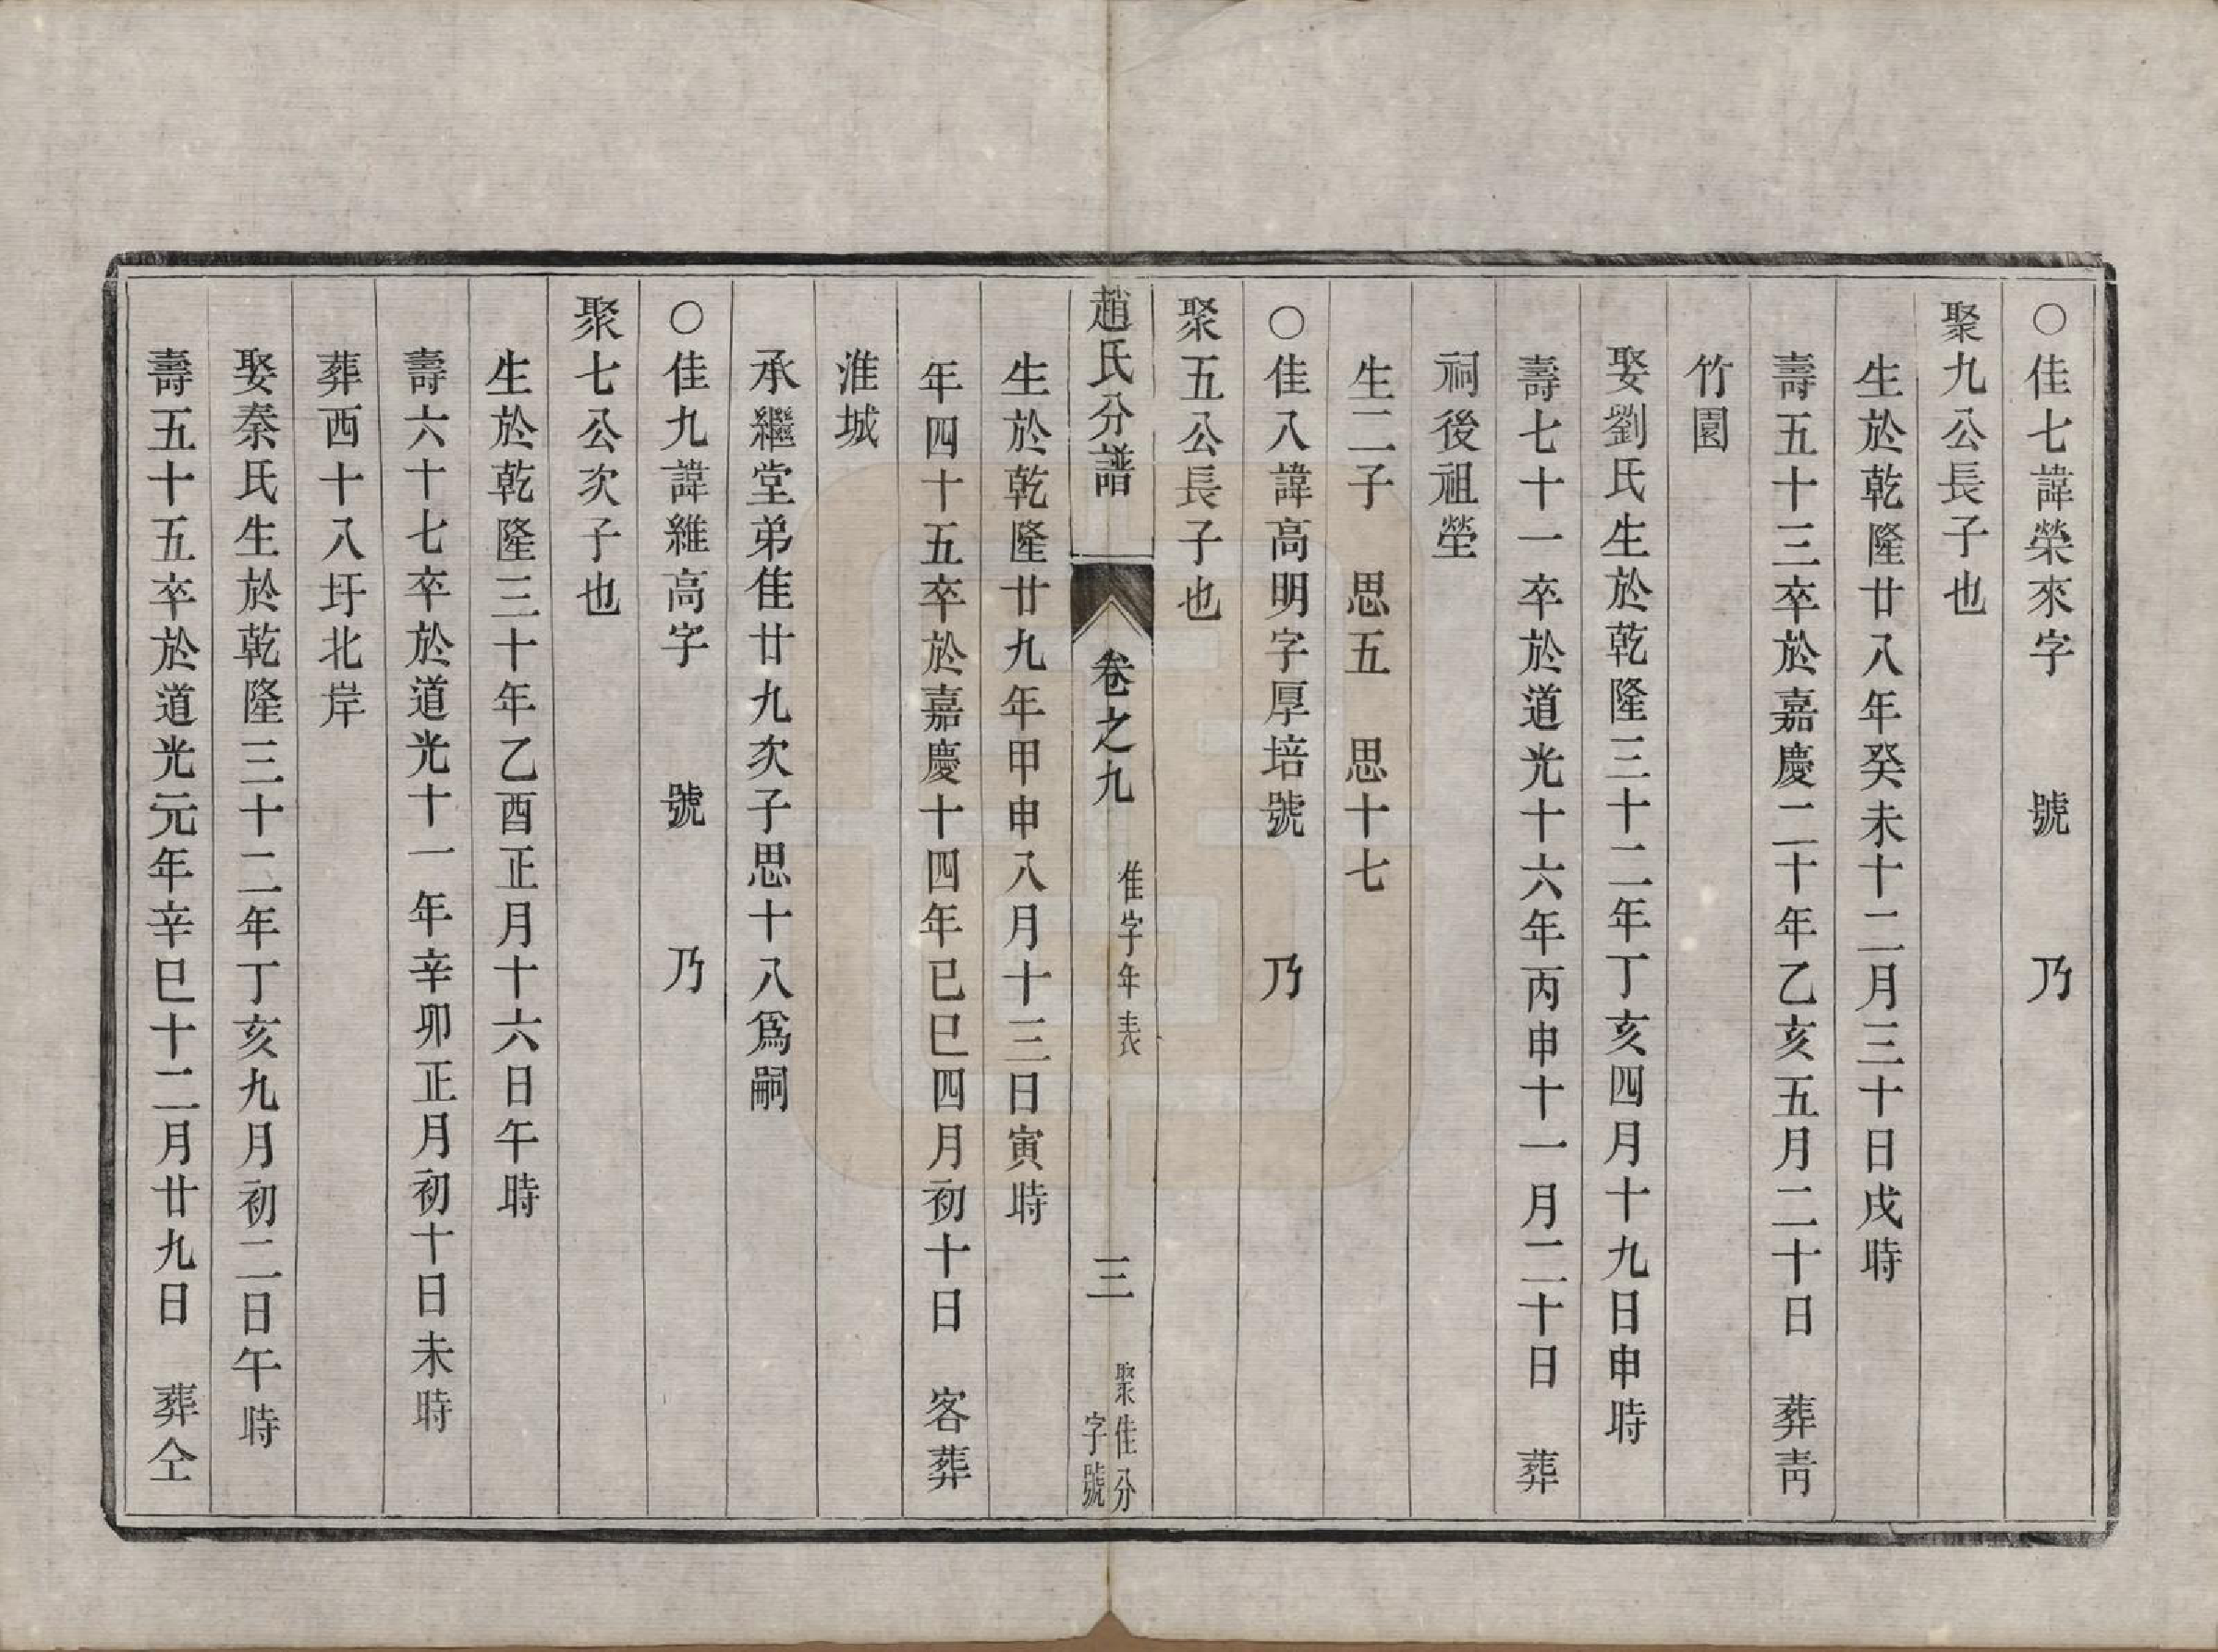 ○佳七諱榮來字　號　乃
聚九公長子也
生於乾隆廿八年癸未十二月三十日戌時
壽五十三卒於嘉慶二十年乙亥五月二十日　葬靑
竹園
娶劉氏生於乾隆三十二年丁亥四月十九日申時
壽七十一卒於道光十六年丙申十一月二十日　葬
祠後祖塋
生二子　思五　思十七
○佳八諱高明字厚培號　乃
聚五公長子也
趙氏分譜　卷之九　佳字年表　三　聚佳分字號
生於乾隆廿九年甲申八月十三日寅時
年四十五卒於嘉慶十四年已巳四月初十日　客葬
淮城
承繼堂弟佳廿九次子思十八爲嗣
○佳九諱維高字　號　乃
聚七公次子也
生於乾隆三十年乙酉正月十六日午時
壽六十七卒於道光十一年辛卯正月初十日未時
葬西十八圩北岸
娶秦氏生於乾隆三十二年丁亥九月初二日午時
壽五十五卒於道光元年辛巳十二月廿九日　葬仝